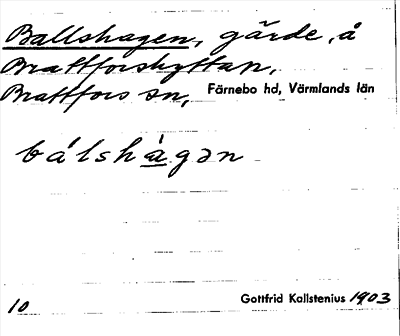 Ballshagen, gärde, å
Brattforshyttan,
Brattfors sn, Färnebo hd, Värmlands län
bálshàgən
10 Gottfrid Kallstenius 1903